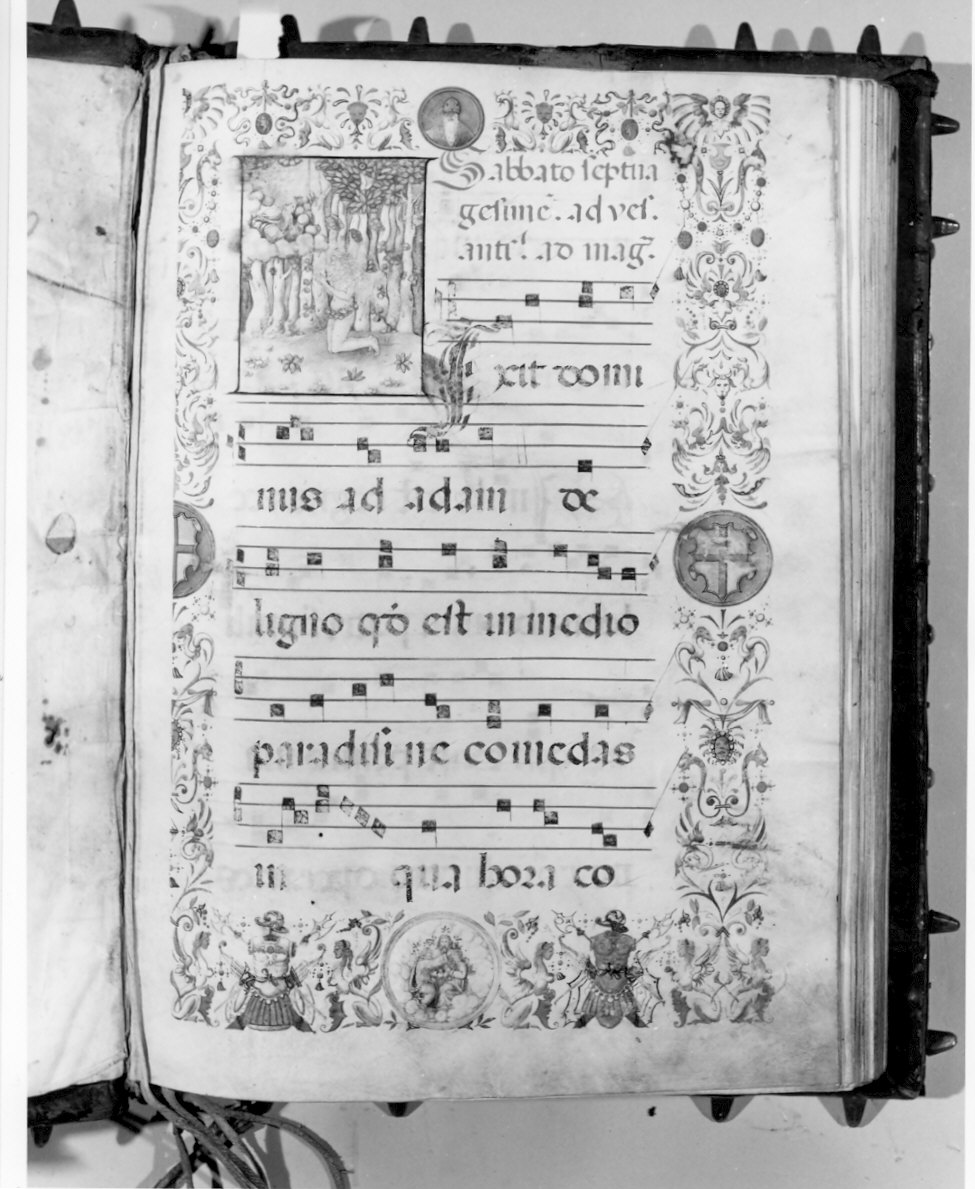 Sabbato septua
gesime ̄. ad ves.
antĩ. ad mag̃.
xit domi
nus ad adam de
ligno qđ est in medio
paradisi ne comedas
in qua hora co